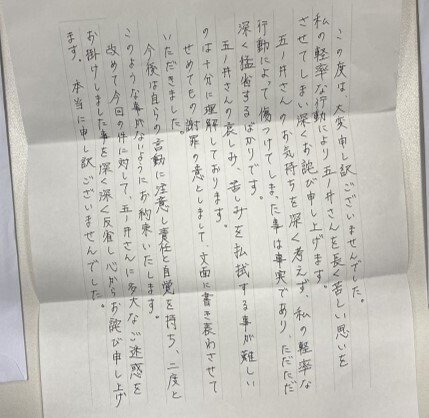 この度は、大変申し訳ございませんでした。
私の軽率な行動により五ノ井さんを長く苦しい思いを
させてしまい深くお詫び申し上げます。
五ノ井さんのお気持ちを深く考えず、私の軽率な
行動によって傷つけてしまった事は事実であり、ただただ
深く猛省するばかりです。
五ノ井さんの哀しみ、苦しみを払拭する事が難しい
のは十分に理解しております。
せめてもの謝罪の意としまして、文面に書き表わさせて
いただきました。
今後は自らの言動に注意し責任と自覚を持ち、二度と
このような事がないようにお約束いたします。
改めて今回の件に対して、五ノ井さんに多大なご迷惑を
お掛けしました事を深く深く反省し心からお詫び申し上げ
ます。本当に申し訳ございませんでした。